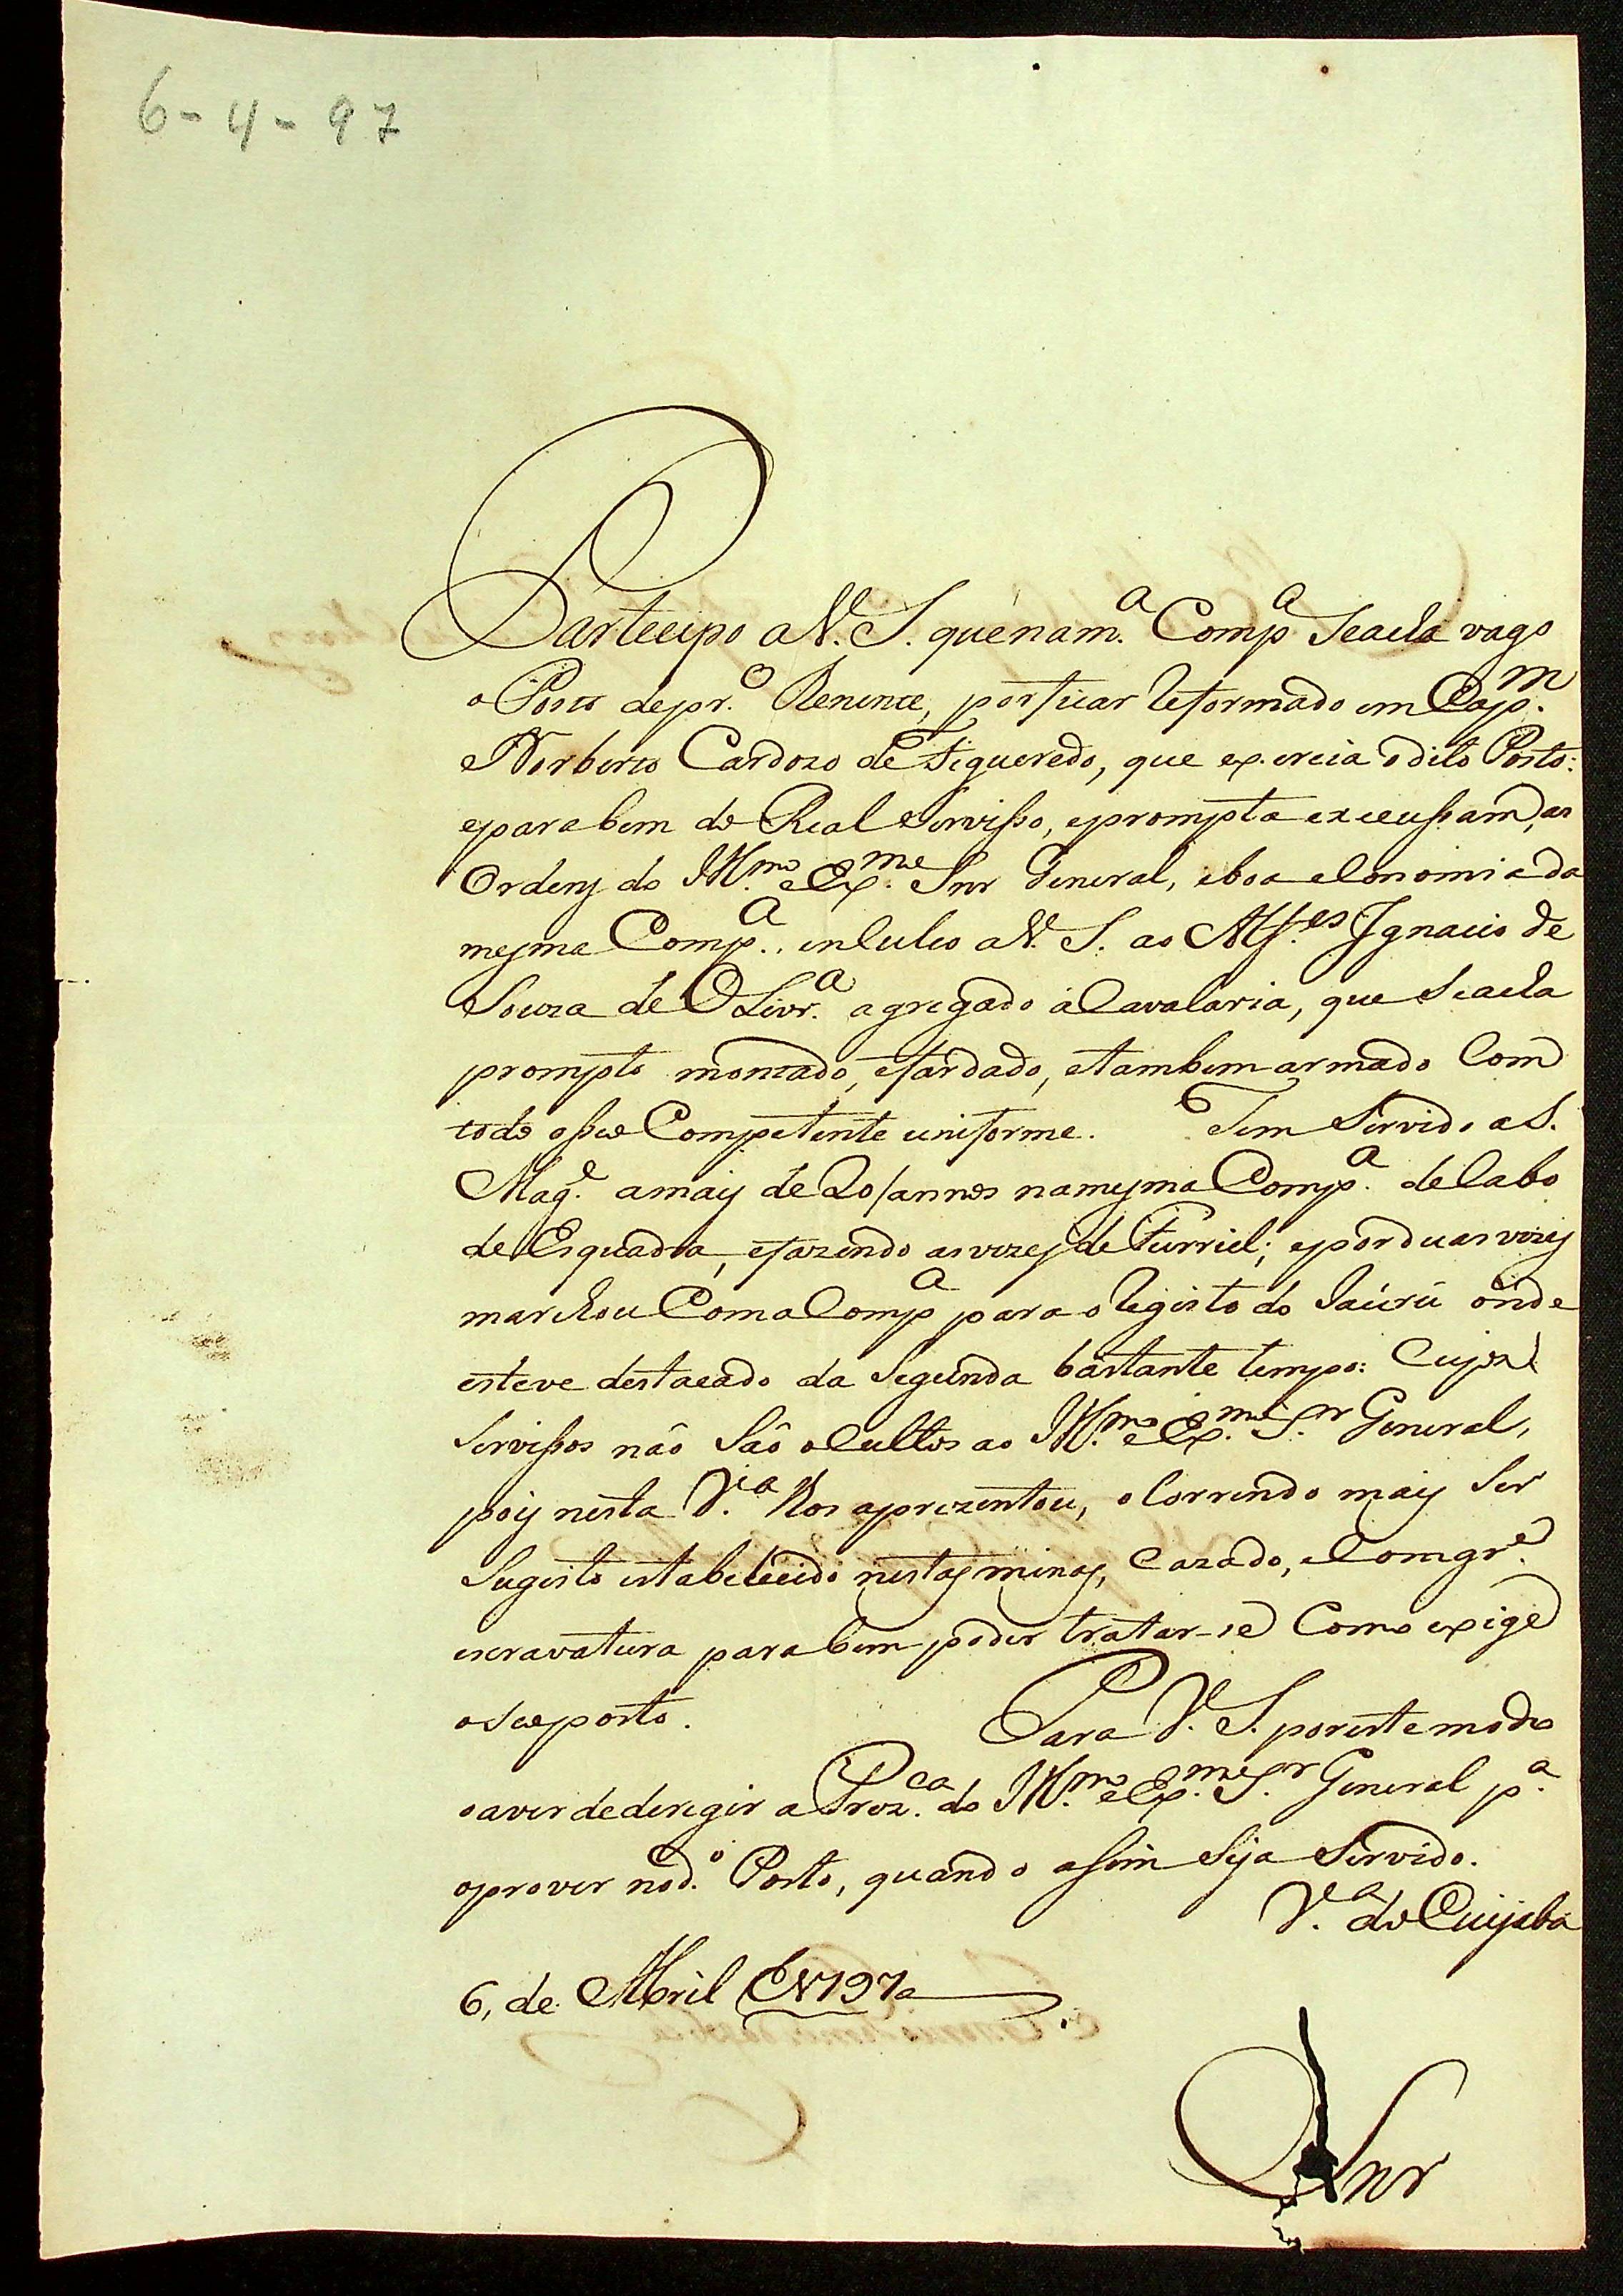 6-4-97
Partecipo a V. S. que na m.ª Comp.ª Seacha vago
o Posto de pr.º Thenente, por ficar Reformado em Cap.m
Norberto Cardozo de Figueredo, que exercia o dito Posto:
e para bem do Real Servisso, e prompta execussam, as
Ordens do Ill.mo e Ex.mo Snr General, e boa economia da
mesma Comp.ª, inculco a V. S. ao Alf.es Ignacio de
Souza de Olivr.ª agregado á Cavalaria, que Seacha
prompto montado, e fardado, e tambem armado Com
todo o seu Competente uniforme. Tem Servido a S.
Mag.e a mais de 20/annos na mesma Comp.ª de Cabo
de Esquadra, e fazendo as vezes de Furriel; e por duas vezes
marchou Com a Comp.ª para o Registo do Jaúrú onde
esteve destacado da Segunda bastante tempo: Cujos
Servissos não São ocultos ao Ill.mo e Ex.mo S.nr General,
pois nesta V.ª lhos aprezentou, ocorrendo mais Ser
Sugeito estabelecido nestas minas, Cazado, e Com gr.e
escravatura para bem poder tratar-se Como exige
o Seu posto. Para V. S. por este modo
o aver de deregir a Prez.ca do Ill.mo e Ex.mo S.nr General p.ª
o prover no d.º Posto, quando assim Seja Servido.
V.ª do Cuyabá
6, de Abril de 1797
Snr